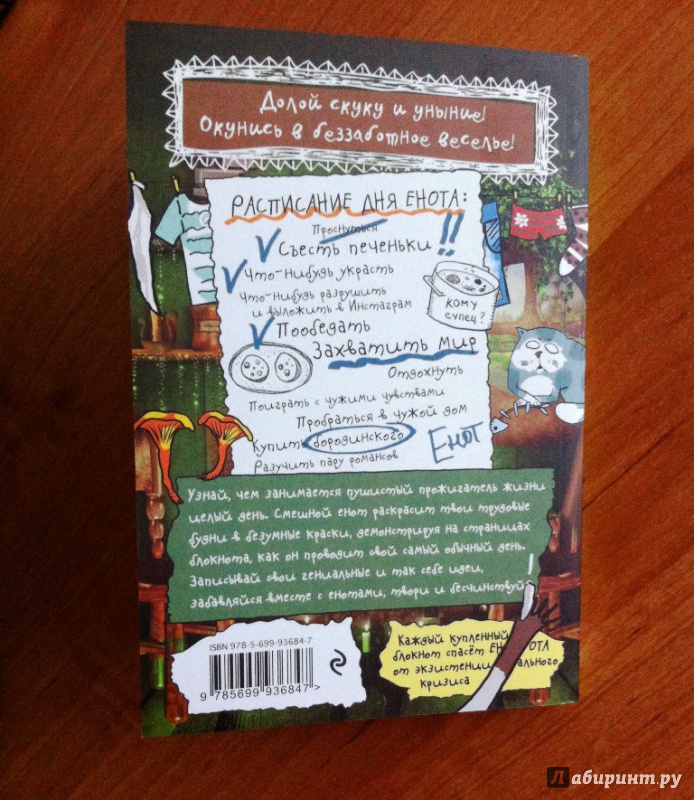 Долой скуку и уныние!
Окунись в беззаботное веселье!
РАСПИСАНИЕ ДНЯ ЕНОТА:
Проснуться
Съесть печеньки!!
Что-нибудь украсть
Что-нибудь разрушить
и выложить в Инстаграм
кому
супец?
Пообедать
Захватить мир
Отдохнуть
Поиграть с чужими чувствами
Пробраться в чужой дом
Купить бородинского
Енот
Разучить пару романсов
Узнай, чем занимается пушистый прожигатель жизни
целый день. Смешной енот раскрасит твои трудовые
будни в безумные краски, демонстрируя на страницах
блокнота, как он проводит свой самый обычный день.
Записывай свои гениальные и так себе идеи,
забавляйся вместе с енотами, твори и бесчинствуй!
ISBN 978-5-699-93684-7
9 785699 936847 >
Каждый купленный
блокнот спасёт ЕНОТА
от экзистенциального
кризиса
Лабиринт.ру